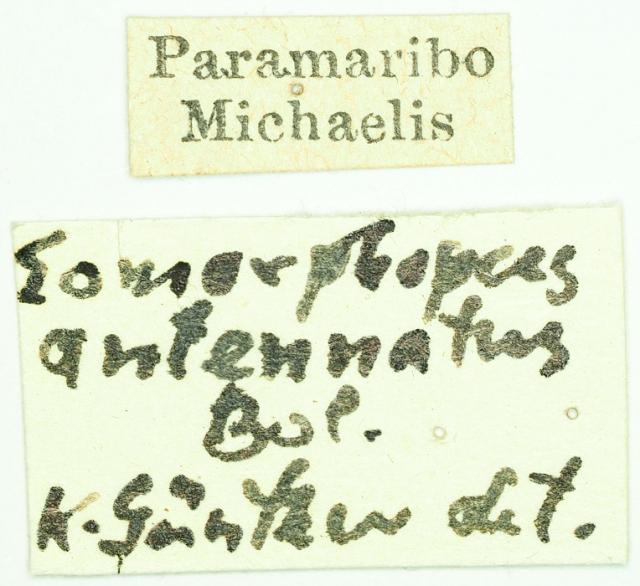 Paramaribo
Michaelis
Eomorphopus
antennatus
Bol.
K. Günther det.